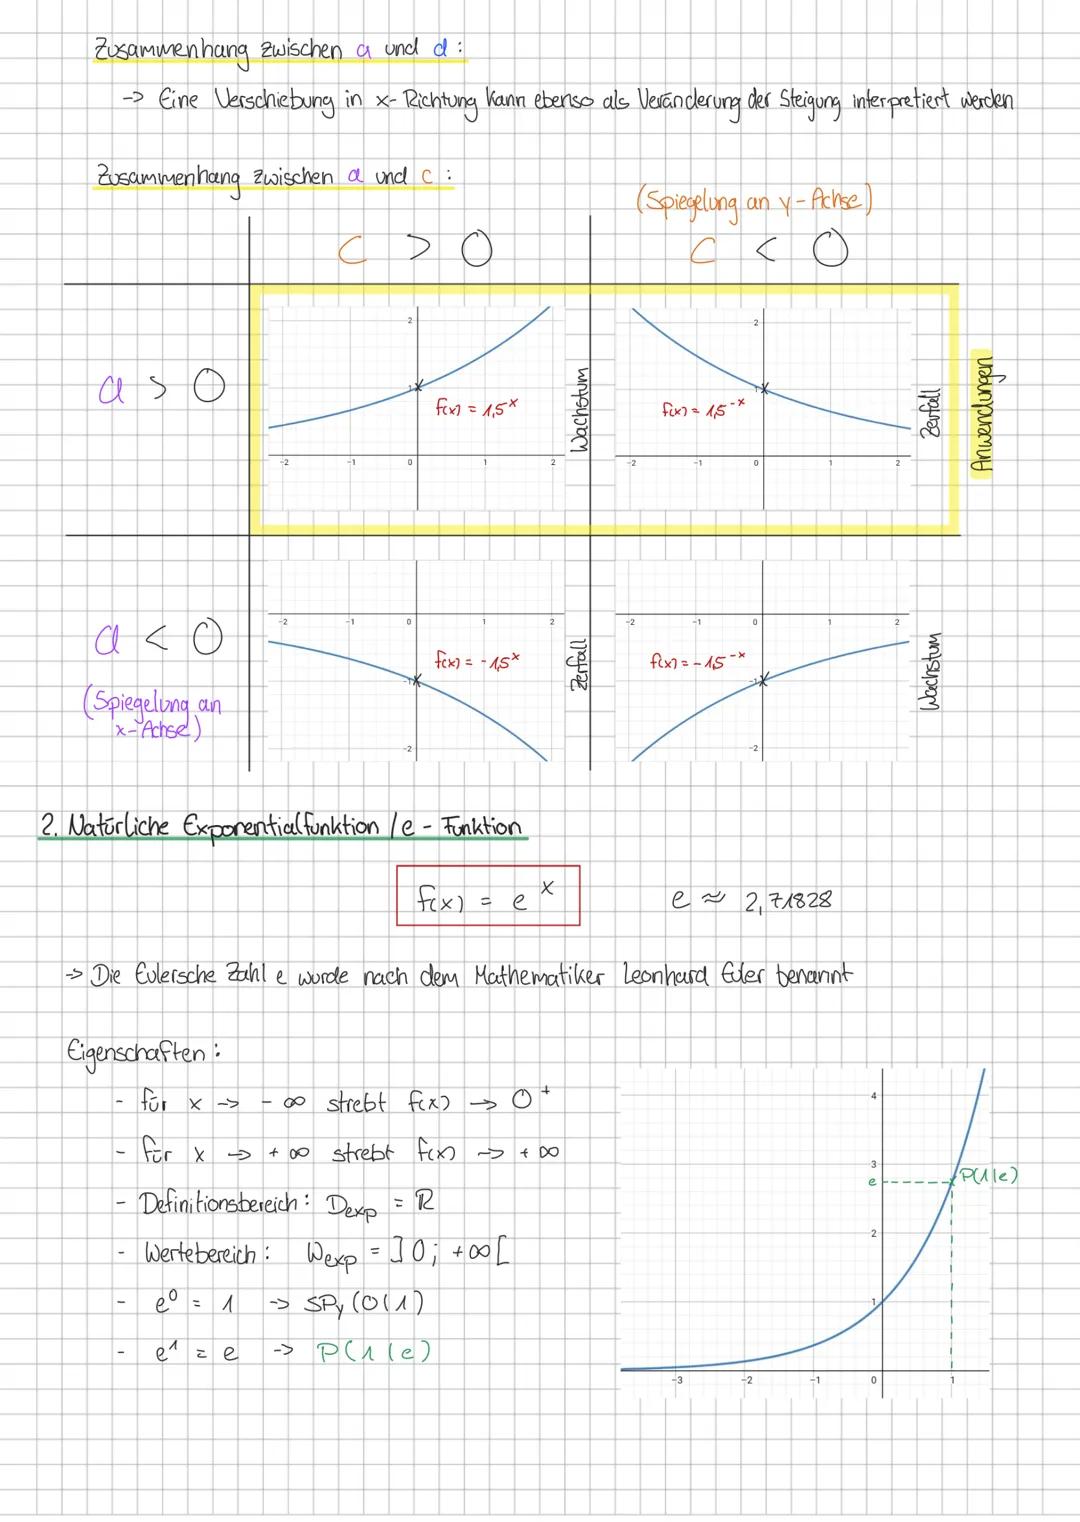 Zusammenhang zwischen a und d :
-> Eine Verschiebung in x-Richtung kann ebenso als Veränderung der Steigung interpretiert werden
Zusammenhang zwischen a und c :
(Spiegelung an y-Achse)
c > 0
c < 0
a > 0
2
1
f(x) = 1,5^x
-2 -1 0 1 2
Wachstum
2
1
f(x) = 1,5^-x
-2 -1 0 1 2
Zerfall
Anwendungen
a < 0
(Spiegelung an
x-Achse)
-2 -1 0 1 2
f(x) = -1,5^x
-1
-2
Zerfall
-2 -1 0 1 2
f(x) = -1,5^-x
-1
-2
Wachstum
2. Natürliche Exponentialfunktion / e - Funktion
f(x) = e^x
e ≈ 2,71828
-> Die Eulersche Zahl e wurde nach dem Mathematiker Leonhard Euler benannt
Eigenschaften :
- für x -> - ∞ strebt f(x) -> 0^+
- für x -> + ∞ strebt f(x) -> + ∞
- Definitionsbereich : D_exp = ℝ
- Wertebereich : W_exp = ]0; +∞[
- e^0 = 1 -> SPy (0|1)
- e^1 = e -> P(1|e)
4
3
e
P(1|e)
2
1
-3 -2 -1 0 1